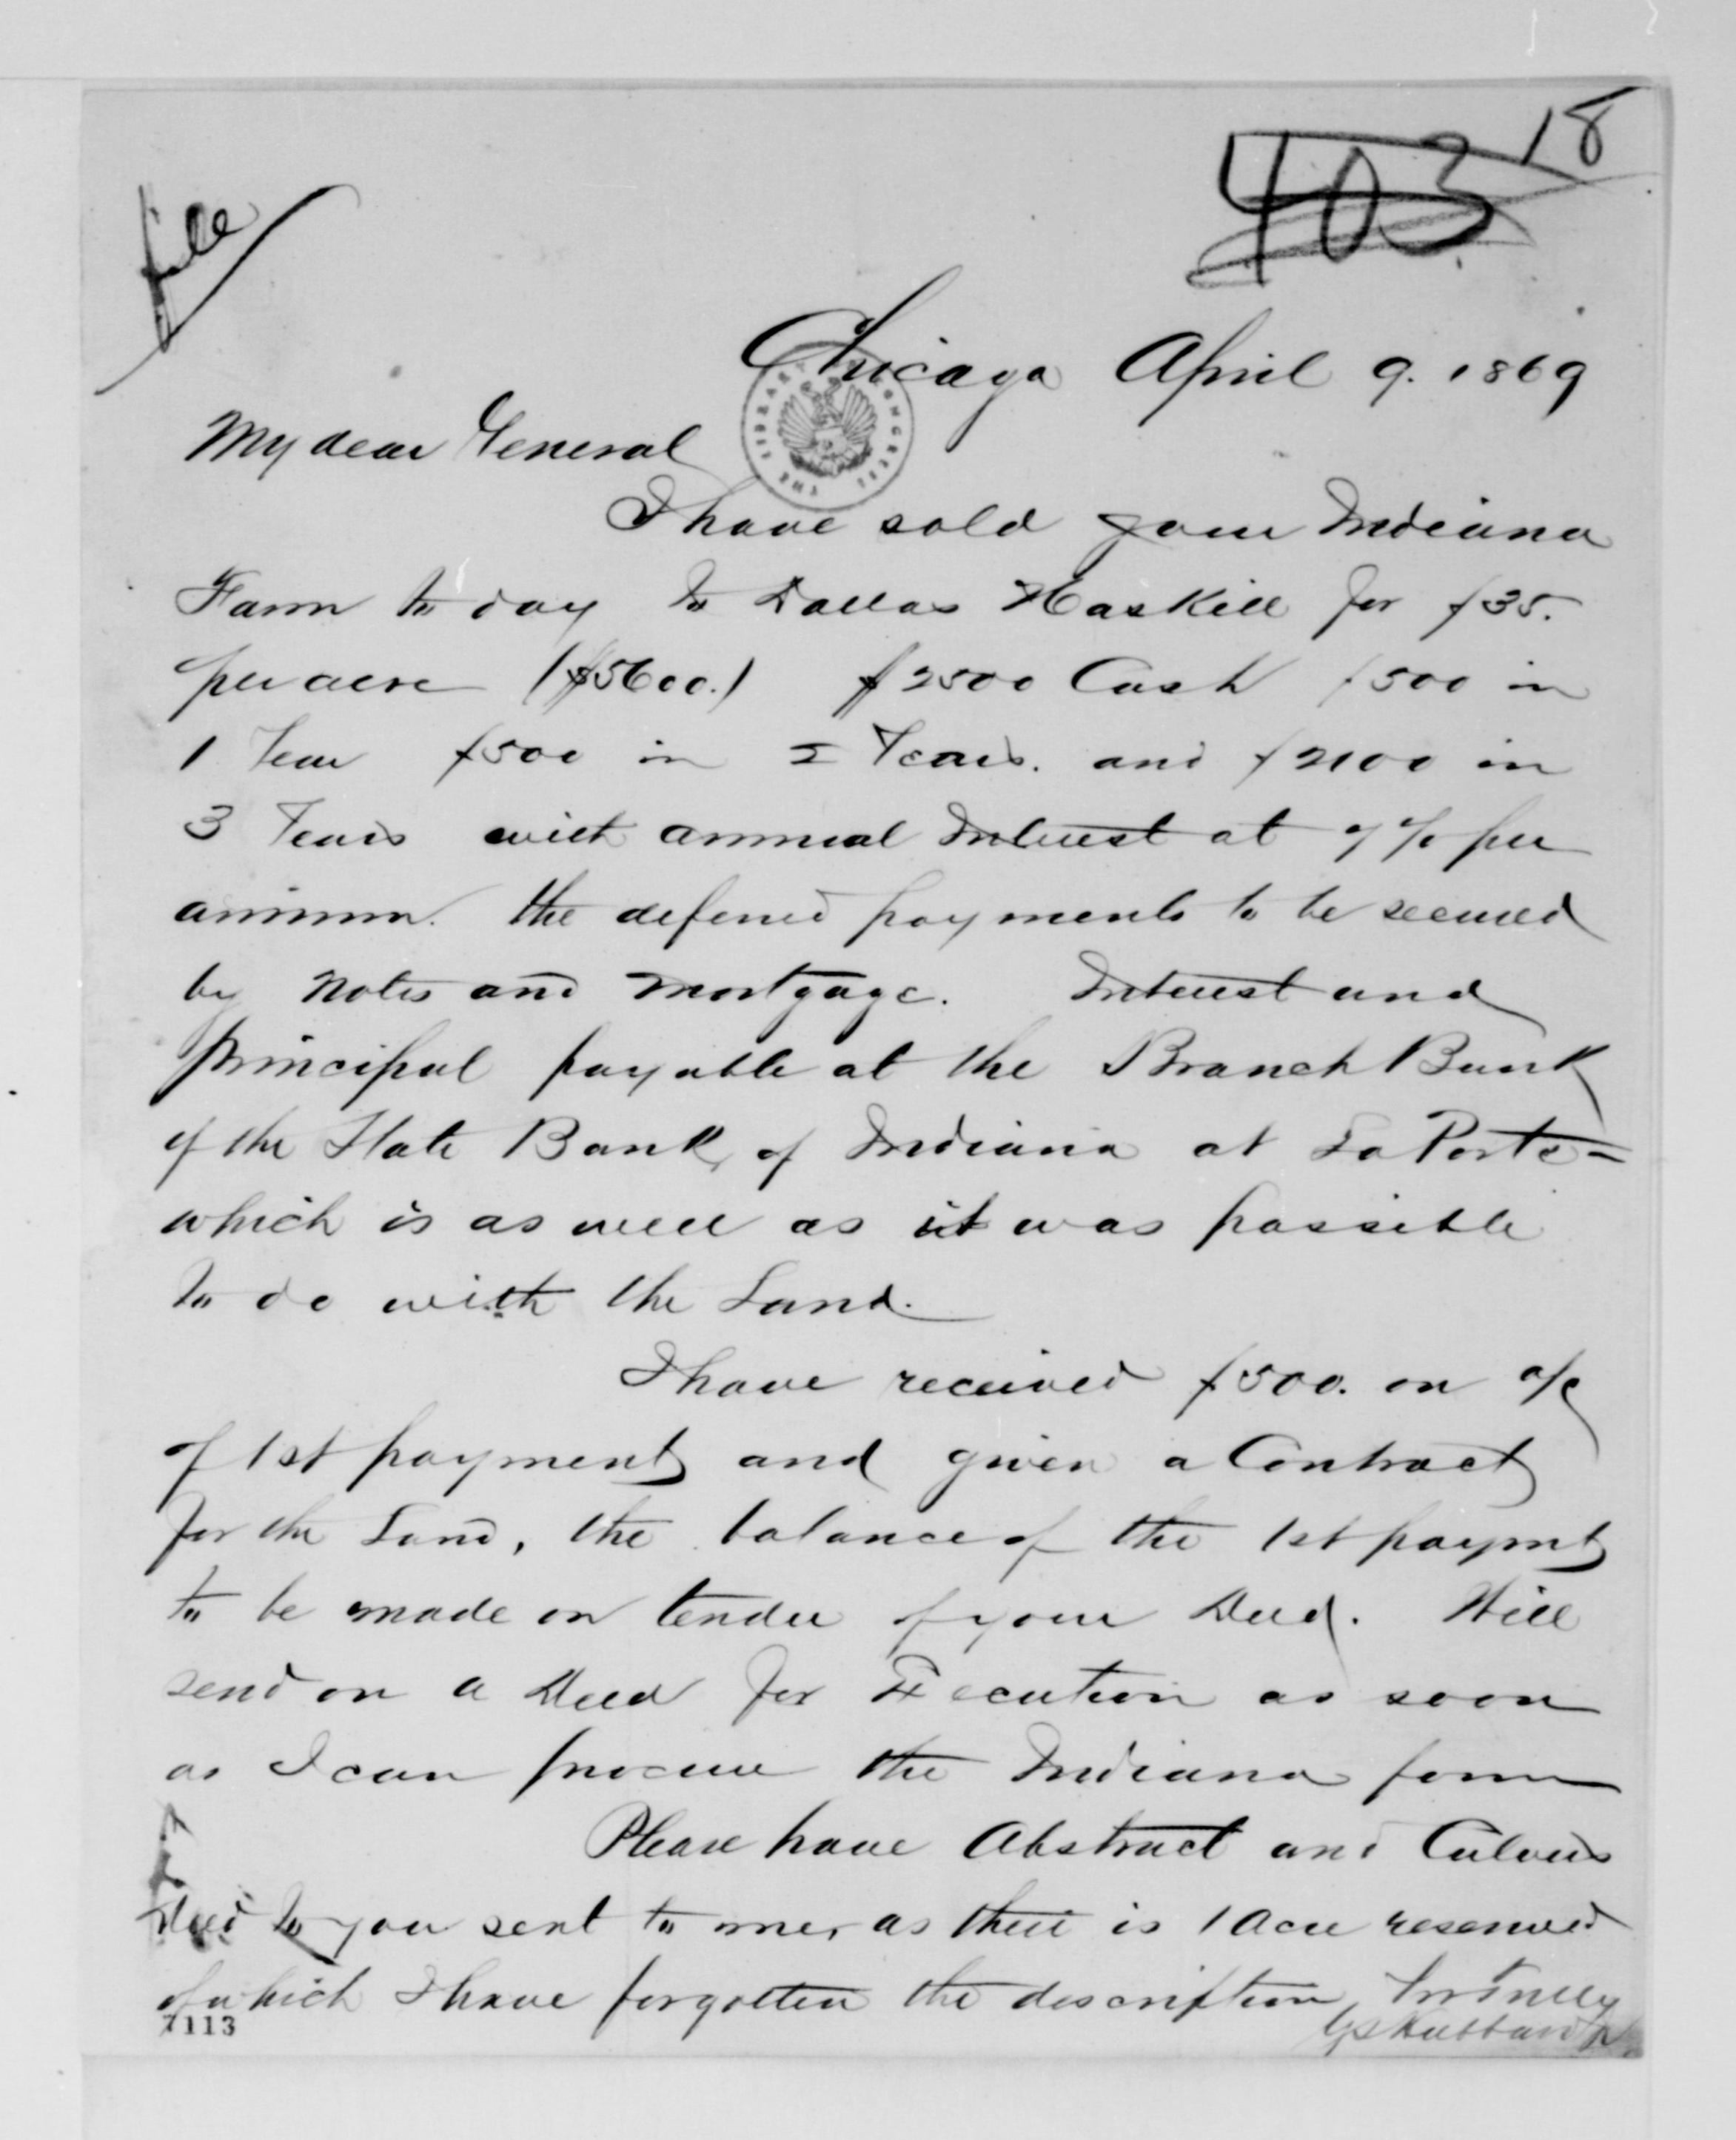 18
403
file
Chicago April 9. 1869
THE LIBRARY CONGRESS
My dear General
I have sold your Indiana
Farm to day to Dallas Haskill for $35.
per acre ($5600.) $2500 Cash $500 in
1 Year $500 in 2 Years. and $2100 in
3 Years with annual Interest at 7% per
annum. the defered payments to be secured
by Notes and Mortgage. Interest and
principal payable at the Branch Bank
of the State Bank of Indiana at La Porte =
which is as well as it was possible
to do with the Land.
I have received $500. on a/c
of 1st payment and given a Contract
for the Land, the balance of the 1st paymt
to be made on tender of your Deed. Will
send on a Deed for Execution as soon
as I can procure the Indiana form
Please have Abstract and Culvers
Deed to you sent to me, as their is 1 Acre reserved
of which I have forgotten the description,
GS Hubbard Jr
7113